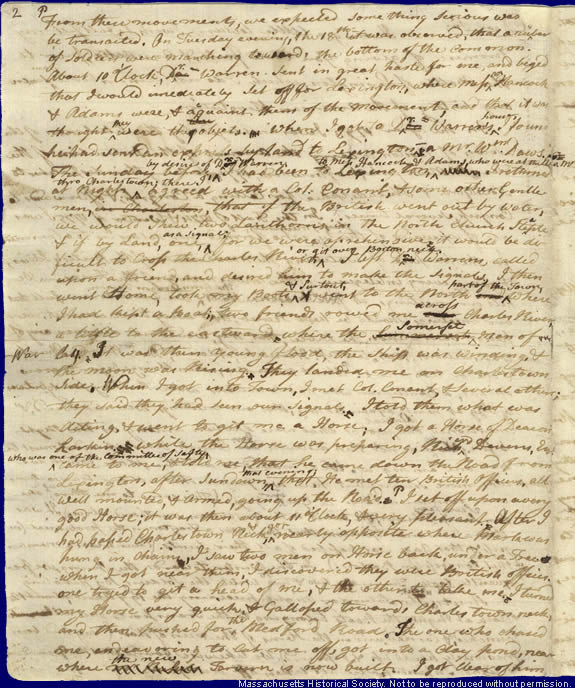 2 P
From these movements, we expected something serious was
be transacted. On Tuesday evening, the 18th, it was observed, that a number
of Soldiers were marching towards the bottom of the Common.
About 10 o'Clock, Dr. Warren Sent in great haste for me, and beged
that I would imediately Set off for Lexington, where Messrs. Hancock
& Adams were, & acquaint them of the Movement, and that it was
thought they were the objets. When I got to Dr. Warren's house, I found
he had sent an express by land to Lexington – a Mr. Wm. Daws.
by desire of Dr. Warren to Messrs. Hancock & Adams, who were at the Rev. Mr.
The Sunday before, I had been to Lexington, I returned
thro Charlestown; there
at Night I agreed with a Col. Conant, & some other Gentle
men, that if the British went out by Water,
we would shew two Lanthorns in the North Church Steeple
as a Signal;
& if by Land, one, for we were aprehensive it would be di
or git over Boston neck.
ficult to Cross the Charles River, I left Dr. Warrens, called
upon a friend, and desired him to make the Signals. I then
& Surtout, part of the Town,
went Home, took my Boots went to the North where
I had kept a Boat; two friends rowed me across Charles River
Somerset
a little to the eastward where the man of
War lay. It was then young flood, the Ship was winding, &
the moon was Rising. They landed me on Charlestown
Side. When I got into Town, I met Col. Conant, & Several others;
they said they had seen our Signals. I told them what was
Acting, & went to git me a Horse; I got a Horse of Deacon
Larkin. while the Horse was preparing, Devens, Esq.
who was one of the Committee of Safty,
came to me, & told me that he came down the Road from
that evening;
Lexington, after Sundown, He met ten British Officers, all
well mounted, & armed, going up the Road. P I set off upon a very
good Horse; it was then about 11 o'Clock, & very pleasant. After I
had passed Charlestown Neck, & got nearly opposite where Mark was
hung in chains, I saw two men on Horse back, under a Tree.
when I got near them, I discovered they were British officers.
one tryed to git a head of me, & the other to take me. I turned
my Horse very quick, & Galloped towards Charlestown neck,
and then pushed for the Medford Road. The one who chased
me, endeavoring to cut me off, got into a Clay pond, near
the new
where Tavern is now built. I got clear of him,
Massachusetts Historical Society. Not to be reproduced without permission.